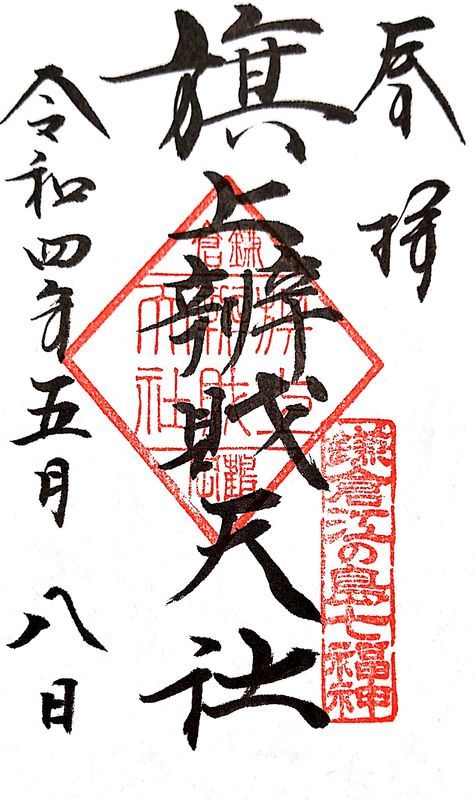 奉拝
旗上辨財天社
鎌倉
旗上辨財天社
鶴岡
鎌倉江の島七福神
令和四年五月八日